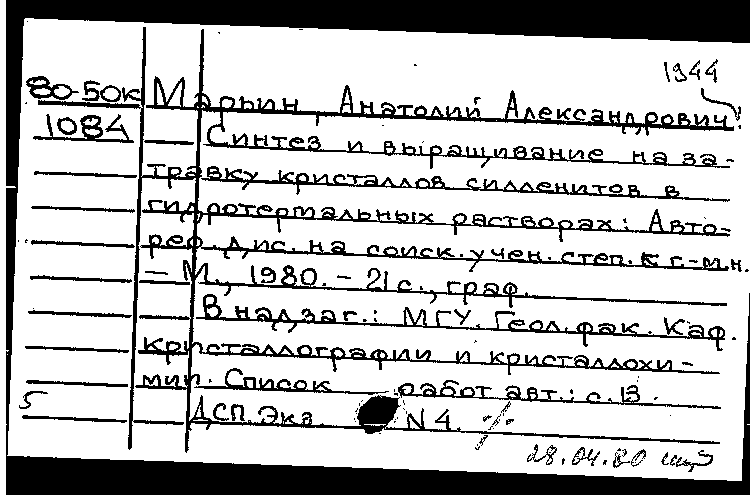 1944
80-50к Марьин, Анатолий Александрович!
1084 Синтез и выращивание на за-
травку кристаллов силленитов в
гидротермальных растворах: Авто-
реф. дис. на соиск. учен. степ. к г.-м.н.
– М., 1980. – 21 с., граф.
В надзаг.: МГУ. Геол. фак. Каф.
кристаллографии и кристаллохи-
мии. Список работ авт.: с. 13.
5 ДСП. Экз. N 4.
28.04.80